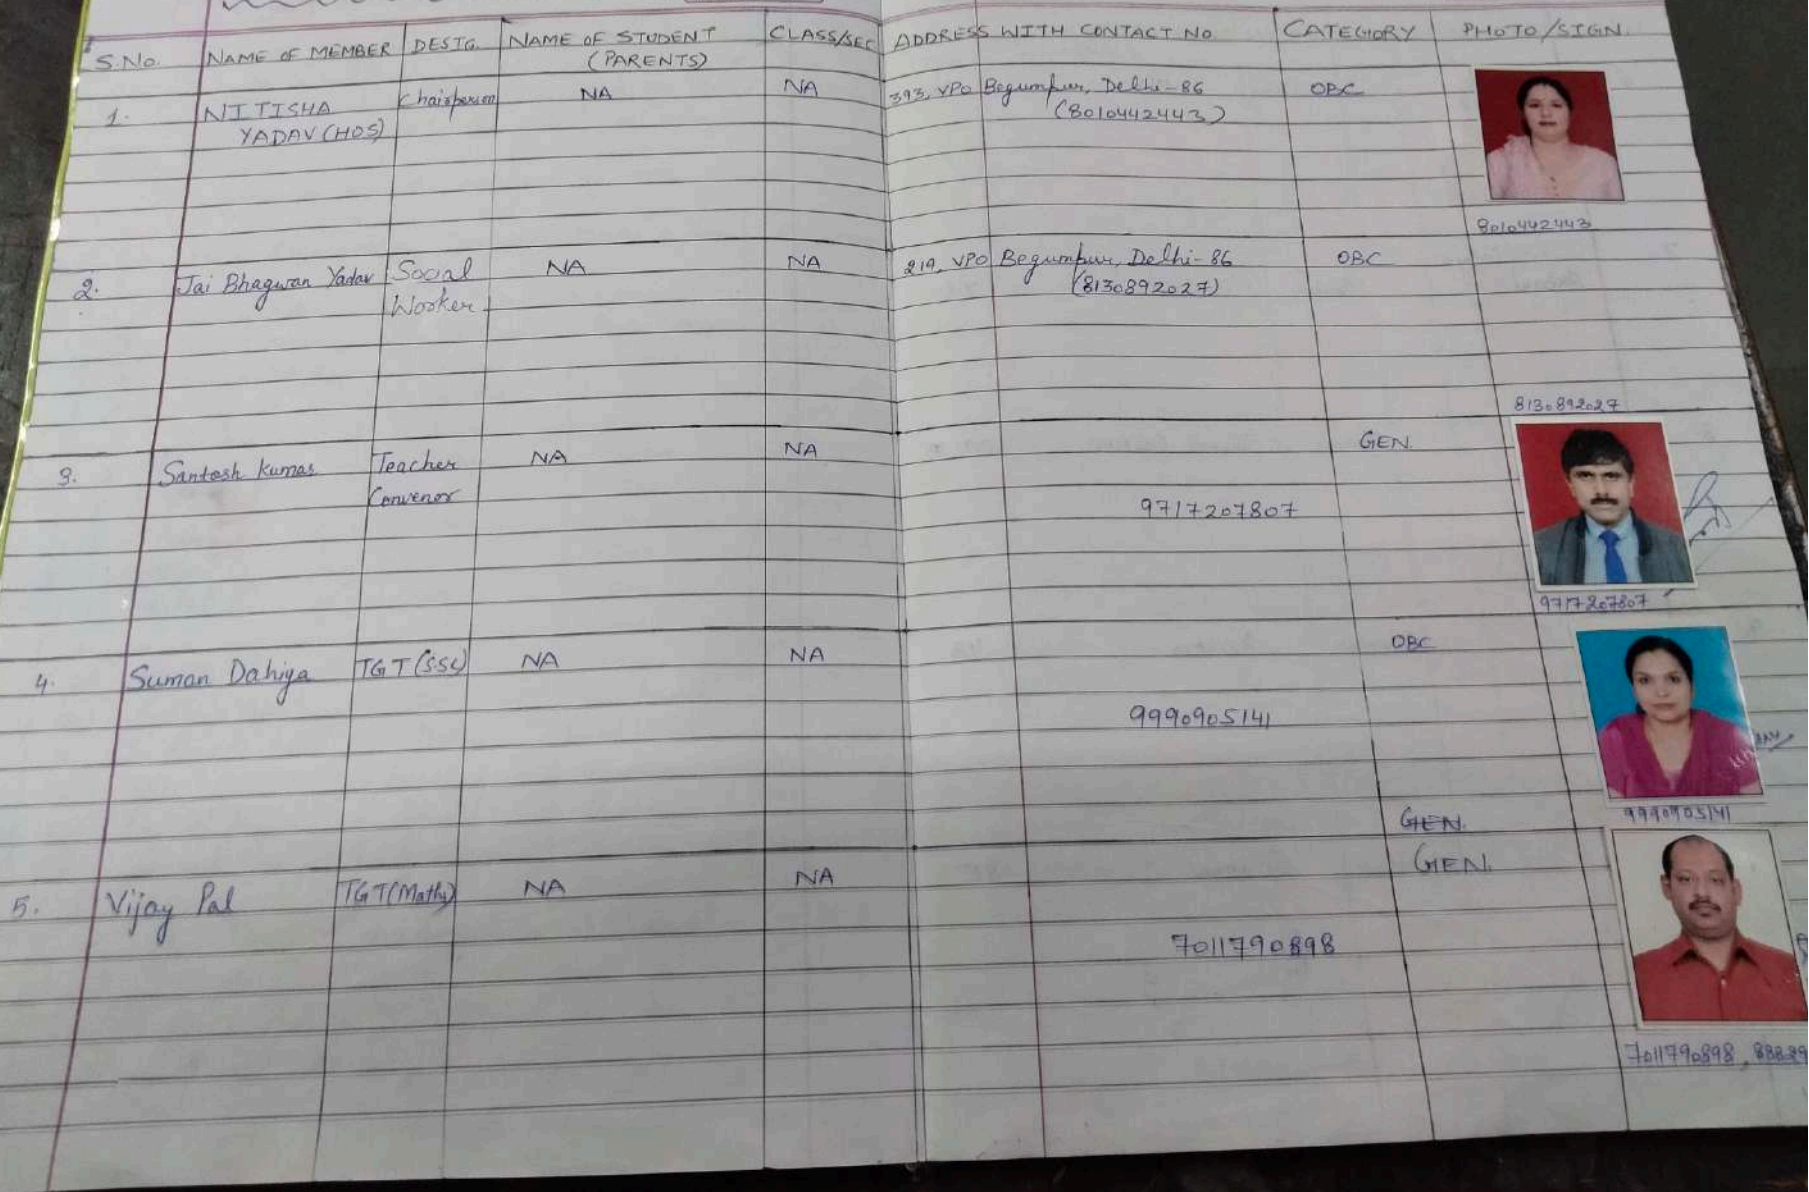 S.No. NAME OF MEMBER DESIG. NAME OF STUDENT (PARENTS) CLASS/SEC ADDRESS WITH CONTACT NO. CATEGORY PHOTO/SIGN.
1. NITISHA Chairperson NA NA 393, VPO Begumpur, Delhi-86 OBC
YADAV (HOS) (8010442443)
8010442443
2. Jai Bhagwan Yadav Social NA NA 219, VPO Begumpur, Delhi-86 OBC
Worker (8130892027)
8130892027
3. Santosh Kumar Teacher NA NA GEN.
Convenor 9717207807
9717207807
4. Suman Dahiya TGT (SSc) NA NA OBC
9990905141
9990905141
GEN.
5. Vijay Pal TGT (Maths) NA NA GEN.
7011790898
7011790898,